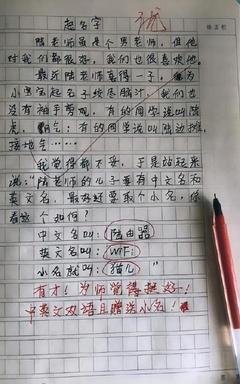 起名字
陆老师虽是个男老师，但他
对我们都很好，我们也很喜欢他。
最近陆老师喜得一子，为
小宝宝起名子绞尽脑汁，我们也
没有袖手旁观，有的同学说叫陆
虎，霸气；有的同学说叫陆边摊，
接地气……
我觉得都不妥，于是站起来
说：“陆老师的儿子要有中文名和
英文名，最好还要取个小名，你
看这个如何？
中文名叫：陆由器
英文名叫：WiFi
小名就叫：猫儿”
有才！为师觉得挺好！
中英文双语且赠送小名！